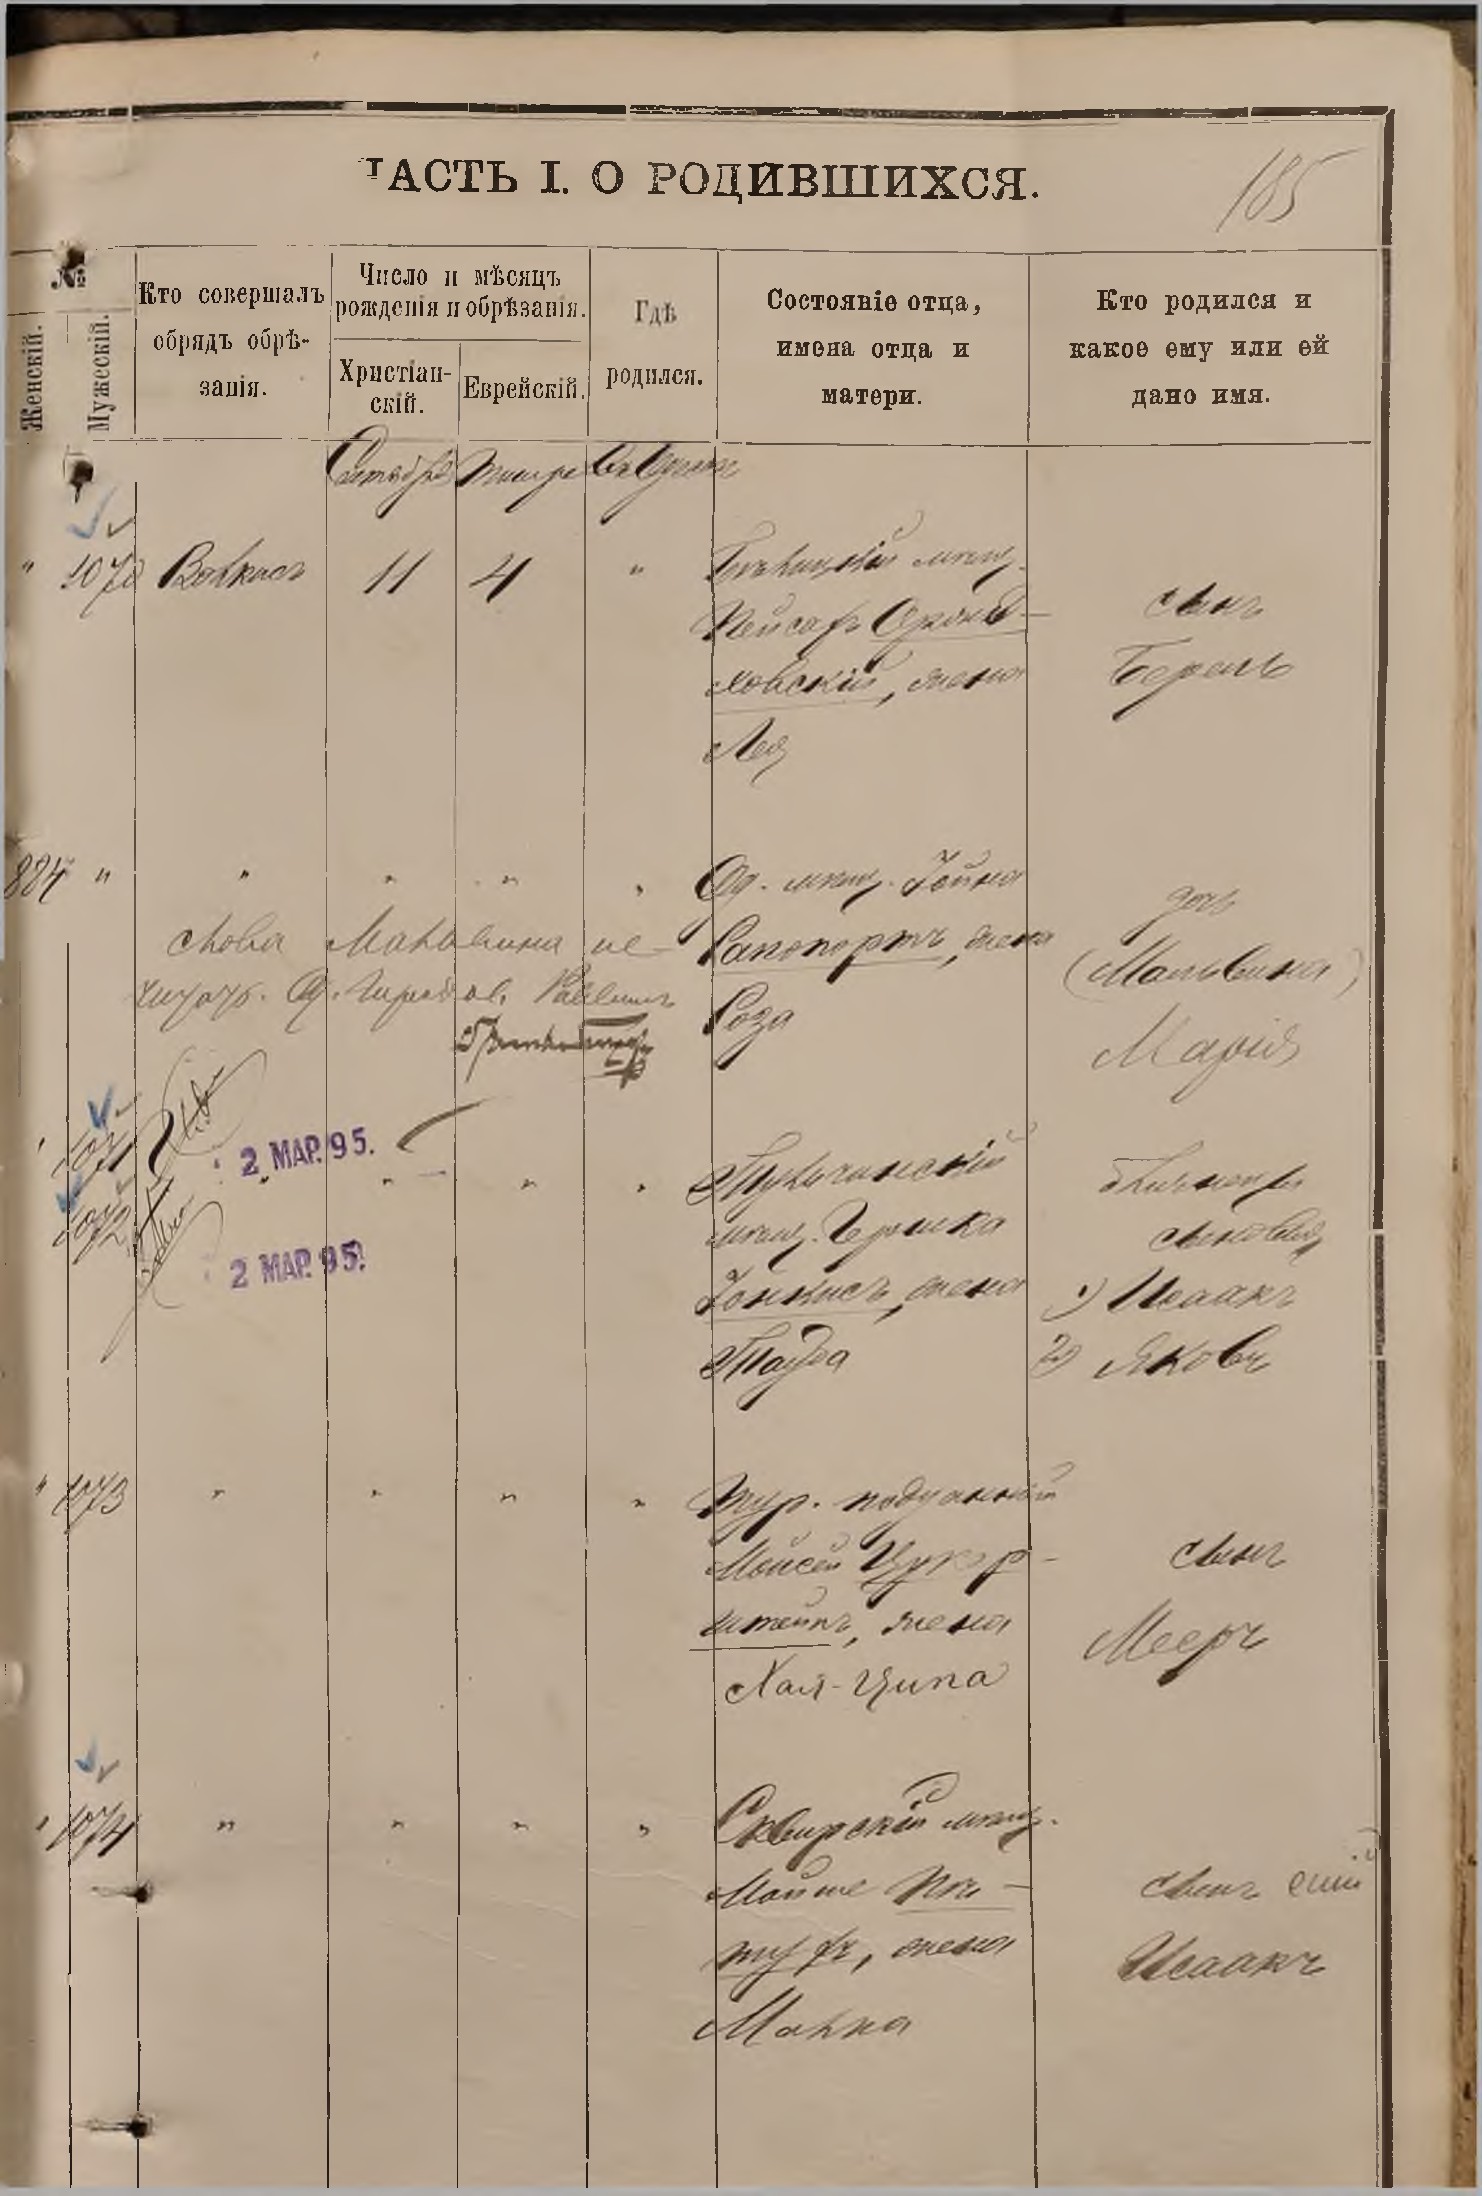 ЧАСТЬ I. О РОДИВШИХСЯ.
185
№
Женскій.
Мужескій.
Кто совершалъ
обрядъ обрѣ-
занія.
Число и мѣсяцъ
рожденія и обрѣзанія.
Христіан-
скій.
Еврейскій.
Гдѣ
родился.
Состояніе отца,
имена отца и
матери.
Кто родился и
какое ему или ей
дано имя.
Сентября Тишре
" 1070 11 4 "
мѣщ.
Пейсахъ
ховскій, жена
Лея
сынъ
Берель
884 " " " " "
Од. мѣщ. Іойна
Рапопортъ, жена
Роза
дочь
(Мальвина)
Марія
Слова Мальвина не
читать. Од. Город. об. Раввинъ
1071
1072
2 МАР. 95.
2 МАР. 95.
" " " "
Тульчинскій
мѣщ. Гершка
Іонкисъ, жена
Тауба
близнецы
сыновья
1) Исаакъ
2) Яковъ
" 1073 " " " "
тур. подданный
Мойсей Цукер-
штейнъ, жена
Хая-Ципа
сынъ
Мееръ
" 1074 " " " "
Сквирскій мѣщ.
Мойше
жена
Малка
сынъ
Исаакъ